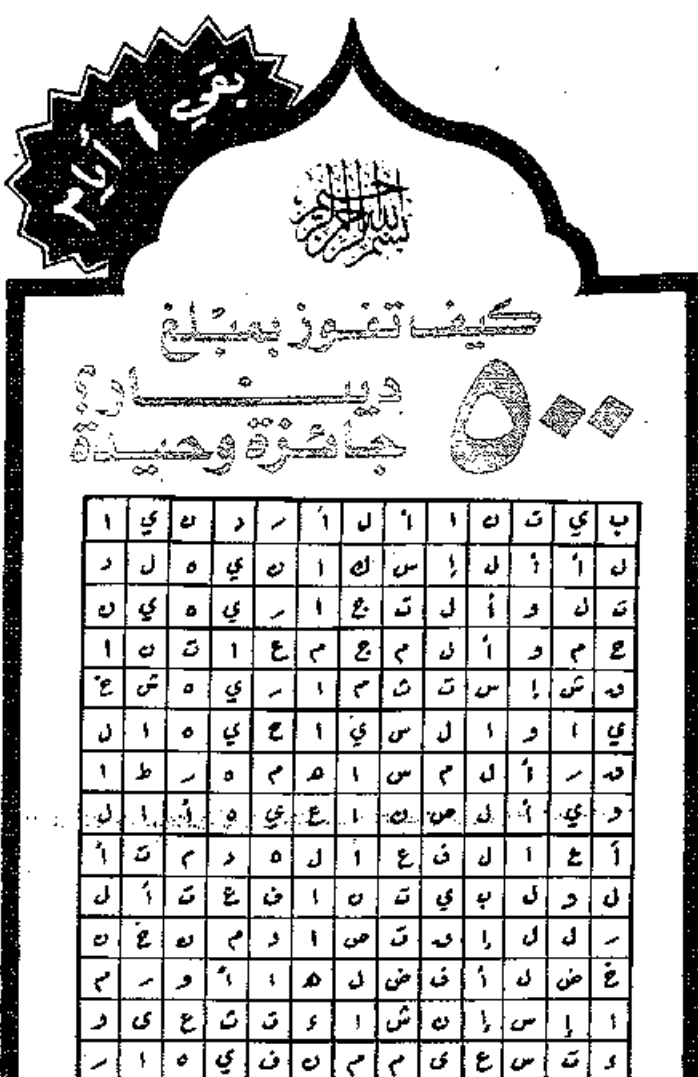 بقي ٦ أيام
بسم الله الرحمن الرحيم
كيف تفوز بمبلغ
٥٠٠ دينار؟
جائزة وحيدة
ب ي ت ن ا أ ل أ ر د ن ي ا
ل أ أ ل إ س ك ا ن ي ه ل د
ت ل و أ ل ت ج ا ر ي ه ي ن
ح م و أ ل م ج م ع ا ت ن ا
ق ش إ س ت ث م ا ر ي ه ش ع
ي ا و ا ل س ي ا ح ي ه ا ل
ق ر أ ل م س ا ه م ه ر ط ا
و ي أ ل ص ن ا ع ي ه أ ا ل
أ ع ا ل ف ع ا ل ه د م ت أ
ل و ل ب ي ت ن ا ف ع ت أ ل
ر ل ل إ ق ت ص ا د م ن خ ن
خ ض ل أ ف ض ل ه ا أ و ر م
ا إ س إ ن ش ا ء ت ت ع ى و
ء ت س ع ى م م ن ف ي ه ا ر